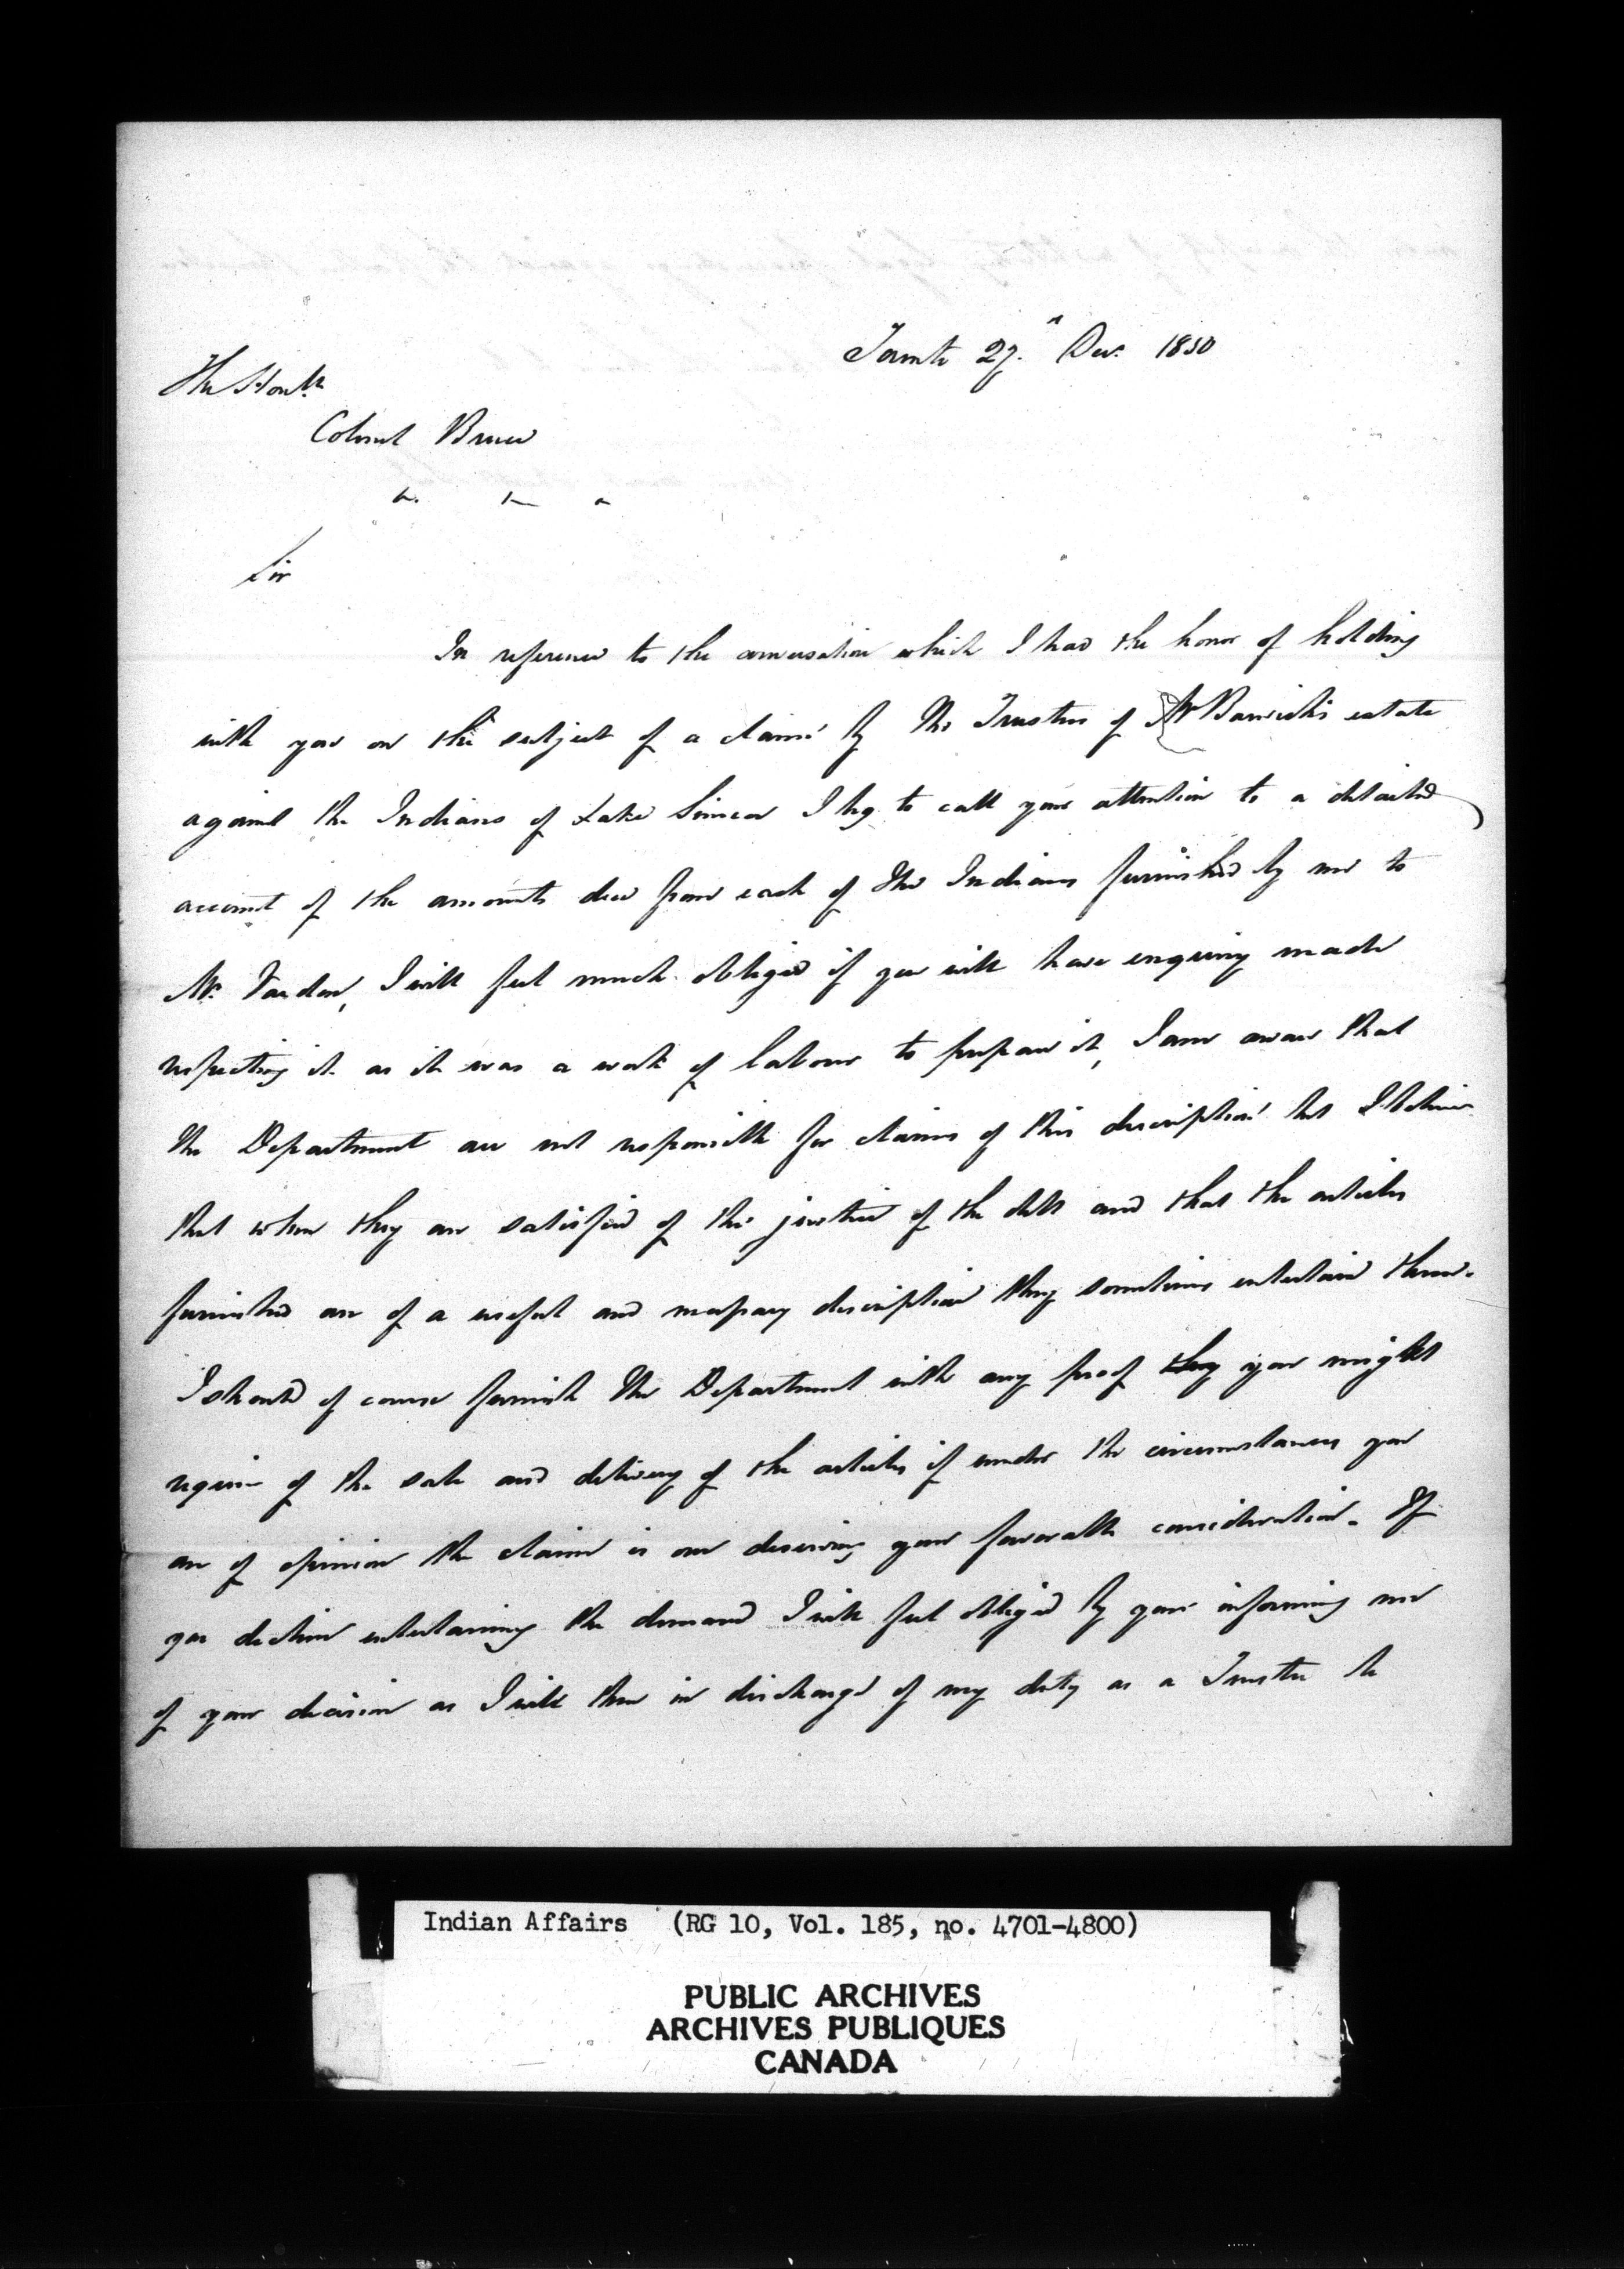 Toronto 27th Decr. 1850
The Honble
Colonel Bruce
&c. &c &c
Sir
In reference to the conversation which I had the honor of holding
with you on the subject of a claim by the Trustees of Mr Barwick's estate
against the Indians of Lake Simcoe I beg to call your attention to a detailed
account of the amounts due from each of the Indians furnished by me to
Mr. Vardon, I will feel much obliged if you will have enquiry made
respecting it as it was a work of labour to prepare it, I am aware that
the Department are not responsible for claims of this description but I believe
that when they are satisfied of the justice of the debt and that the articles
furnished are of a useful and necessary description they sometimes entertain them.
I should of course furnish the Department with any proof they you might
require of the sale and delivery of the articles if under the circumstances you
are of opinion the claim is one deserving your favorable consideration. If
you decline entertaining the demand I will feel obliged by your informing me
of your decision as I will then in discharge of my duty as a Trustee be
Indian Affairs (RG 10, Vol. 185, no. 4701-4800)
PUBLIC ARCHIVES
ARCHIVES PUBLIQUES
CANADA